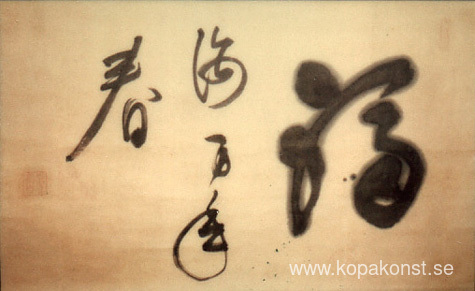 福
海万年
春
www.kopakonst.se